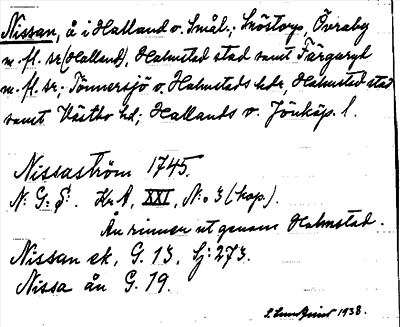 Nissan, å i Halland o. Smål.; Snöstorp, Övraby
m. fl. sr (Halland), Halmstad stad samt Färgaryd
m. fl. sr; Tönnersjö o. Halmstads hdr, Halmstad stad
samt Västbo hd; Hallands o. Jönköp. l.
Nissaström 1745.
N: G: S: Kr. A, XXI, N:o 3 (kop.).
Ån rinner ut genom Halmstad.
Nissan ek, G. 13, Sj: 273.
Nissa ån G. 19.
E. Lundquist 1938.